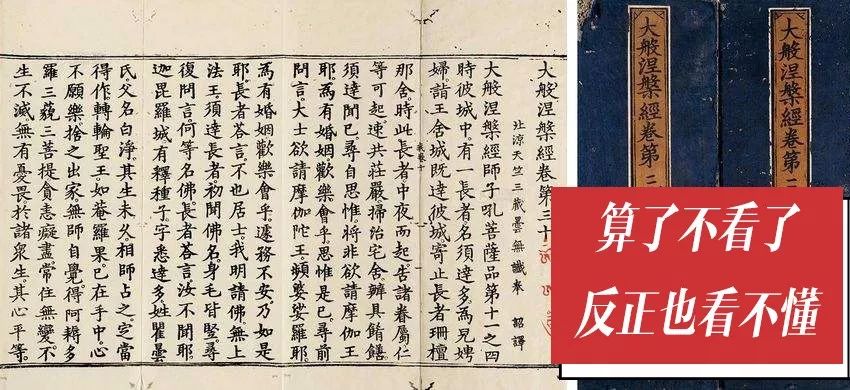 大般涅槃經卷第三十
北涼天竺三藏曇無讖奉 詔譯
大般涅槃經師子吼菩薩品第十一之四
時彼城中。有一長者。名須達多。為兒娉
婦。詣王舍城。既達彼城。寄止長者珊檀
那舍。時此長者。中夜而起。告諸眷屬。仁
等可起。速共莊嚴。掃治宅舍。辦具餚饍。
須達聞已。尋自思惟。將非欲請摩伽王
耶。為有婚姻歡樂會乎。思惟是已。尋前
問言。大士欲請摩伽陀王。頻婆娑羅耶。
為有婚姻歡樂會乎。遽務不安。乃如是
耶。長者荅言。不也居士。我明請佛無上
法王。須達長者初聞佛名。身毛皆豎。尋
復問言。何等名佛。長者荅言。汝不聞耶。
迦毘羅城有釋種子。字悉達多。姓瞿曇
氏。父名白淨。其生未久。相師占之。定當
得作轉輪聖王。如菴羅果。已在手中。心
不願樂。捨之出家。無師自覺。得阿耨多
羅三藐三菩提。貪恚癡盡。常住無變。不
生不滅。無有憂畏。於諸眾生。其心平等。
大般涅槃經卷第
大般涅槃經卷第二
算了不看了
反正也看不懂